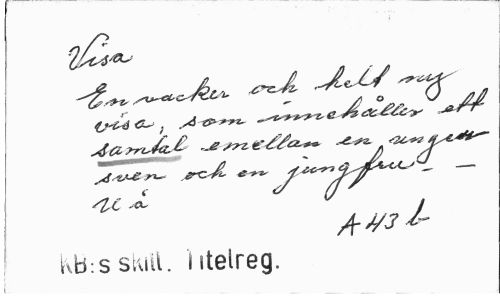 Visa
En vacker och helt ny
visa, som innehåller ett
samtal emellan en ungen
sven och en jungfru - -
U å
A 43 b
KB:s skill. Titelreg.